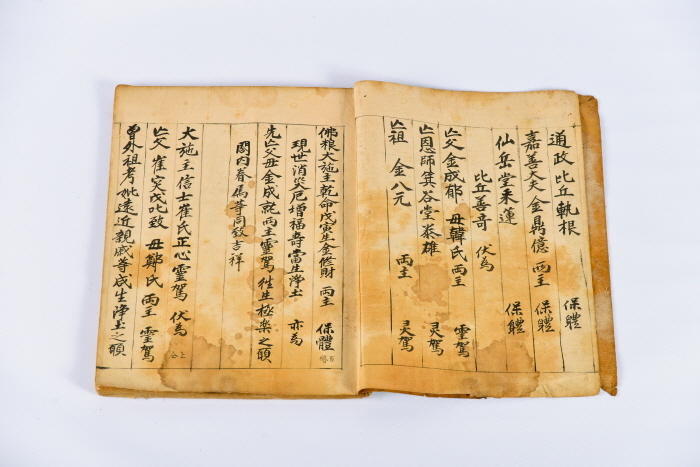 通政 比丘軌根 保體
嘉善大夫 金鳥億 両主 保體
仙岳堂末蓮 保軆
比丘善奇 伏為
亡父 金成郁 母韓氏 両主 靈駕
亡恩師箕谷堂泰雄 灵駕
亡祖 金八元 両主 灵駕
佛粮大施主乾命戊寅生金修財 両主 保體
現世消災厄增福壽當生淨土 亦為
先亡父母金成就両主靈駕徃生極楽之願
閤內眷属等同致吉祥
大施主信士崔氏正心靈駕 伏為
亡父 崔 戊 致 母鄭氏 両主 靈駕
曽外祖考妣遠近親戚等咸生淨土之頭